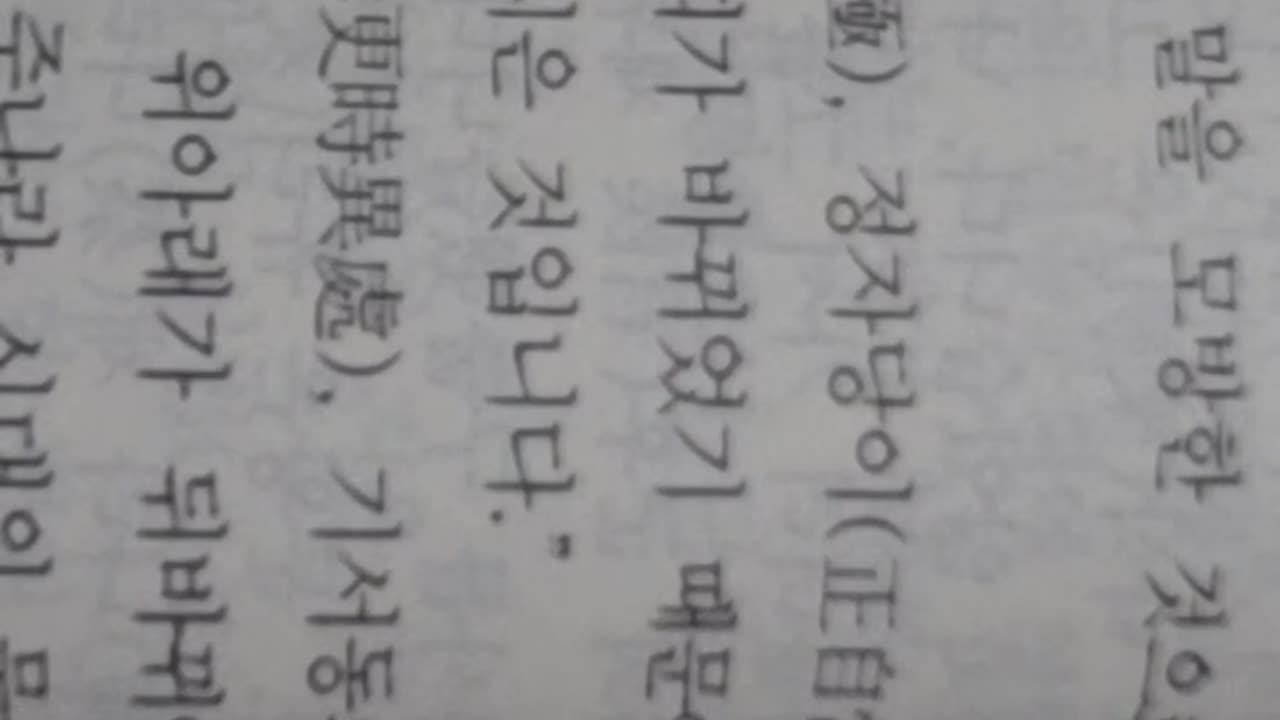 말을 모방한 것으
), 정자당이(正自
가 바뀌었기 때문
은 것입니다."
更時異處), 기서동
위아래가 뒤바뀌
주나라 시대의